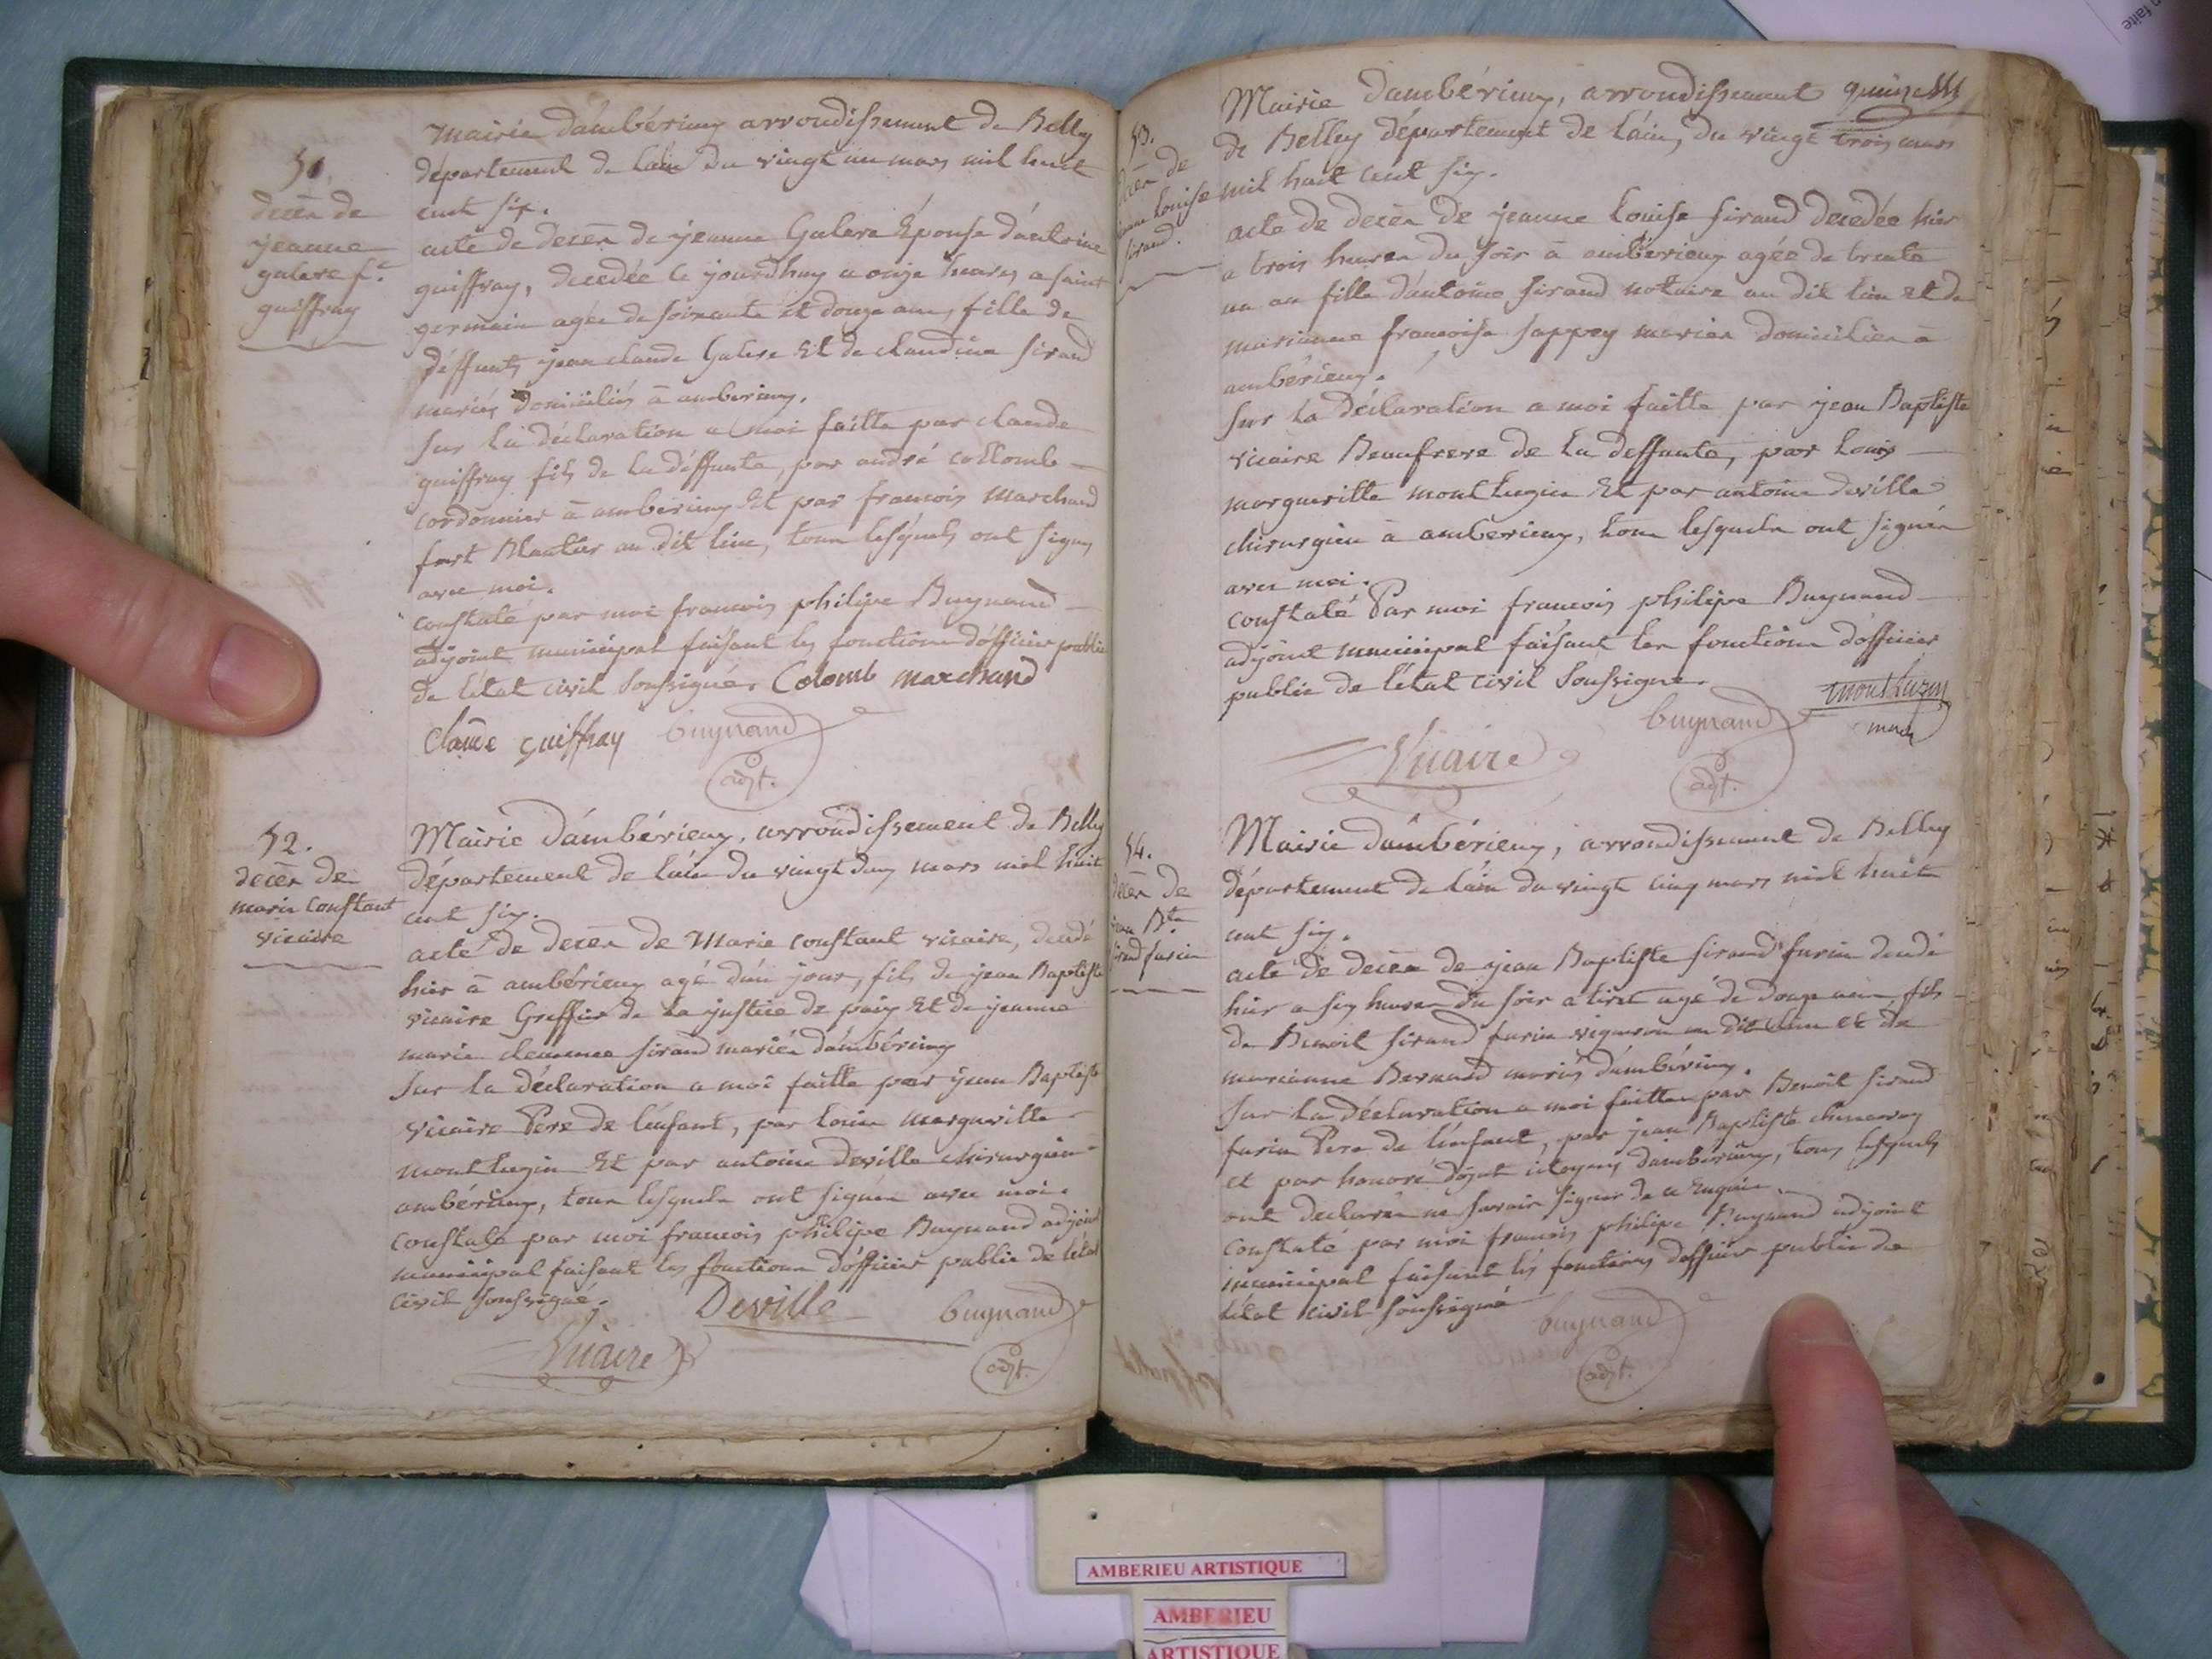 51.
decès de
jeanne
galere f.e
guiffray
Mairie d'ambérieux arrondissement de Belley
département de l'ain du vingt un mars mil huit
cent six.
acte de decès de jeanne Galere Épouse d'antoine
guiffray, decedée ce jourdhuy a onze heures a saint
germain agée de soixante et douze ans, fille de
déffunts jean claude Galere Et de claudine sirand
mariés domiciliés à amberieux.
sur la déclaration a moi faitte par claude
guiffray fils de la déffunte, par andré collomb
cordonnier à amberieux Et par francois Marchand
fort au dit lieu, tous lesquels ont signés
avec moi.
constaté par moi francois philipe Buynand
adjoint municipal faisant les fonctions d'officier public
de l'état civil soussigné. Colomb marchand
Claude guiffray buynand
adjt.
52.
decès de
marie constant
vicaire
Mairie d'ambérieux, arrondissement de Belley
département de l'ain du vingt deux mars mil huit
cent six.
acte de decès de Marie constant vicaire, decedé
hier à ambérieux agé d'un jour, fils de jean Baptiste
vicaire Greffier de la justice de paix Et de jeanne
marie clemence sirand mariés d'ambérieux
sur la déclaration a moi faitte par jean Baptiste
vicaire Pere de l'enfant, par louis margueritte
montluzin Et par antoine deville chirurgien
ambérieux, tous lesquels ont signés avec moi.
constaté par moi francois philipe Buynand adjoint
municipal faisant les fonctions d'officier public de l'état
civil soussigné.
Deville buynand
Vicaire adjt.
53.
decès de
jeanne louise
sirand.
Mairie d'ambérieux, arrondissement
de Belley département de l'ain, du vingt trois mars
mil huit cent six.
acte de decès de jeanne louise sirand decedée hier
a trois heures du soir à ambérieux agée de trente
un an fille d'antoine sirand notaire au dit lieu et de
marianne francoise sappey mariés domiciliés à
ambérieux.
sur la déclaration a moi faitte par jean Baptiste
vicaire Beaufrere de la deffunte, par louis
margueritte montluzin Et par antoine deville
chirurgien à amberieux, tous lesquels ont signés
avec moi.
constaté Par moi francois philipe Buynand
adjoint municipal faisant les fonctions d'officier
public de l'état civil soussigné.
montluzin
buynand
Vicaire
adjt.
54.
decès de
jean Bte
sirand furin
Mairie d'ambérieux, arrondissement de Belley
département de l'ain du vingt cinq mars mil huit
cent six.
acte de decès de jean Baptiste sirand furin decedé
hier a six heures du soir a tiret agé de douze ans, fils
de Benoit sirand furin vigneron au dit lieu et de
marianne Bernard mariés d'ambérieux.
sur la déclaration a moi faitte par Benoit sirand
furin Pere de l'enfant, par jean Baptiste
et par honoré citoyens d'ambérieux, tous lesquels
ont declarés ne savoir signer de ce Enquis.
constaté par moi francois philipe Buynand adjoint
municipal faisant les fonctions d'officier public de
l'état civil soussigné
buynand
adjt.
AMBERIEU ARTISTIQUE
AMBERIEU
ARTISTIQUE